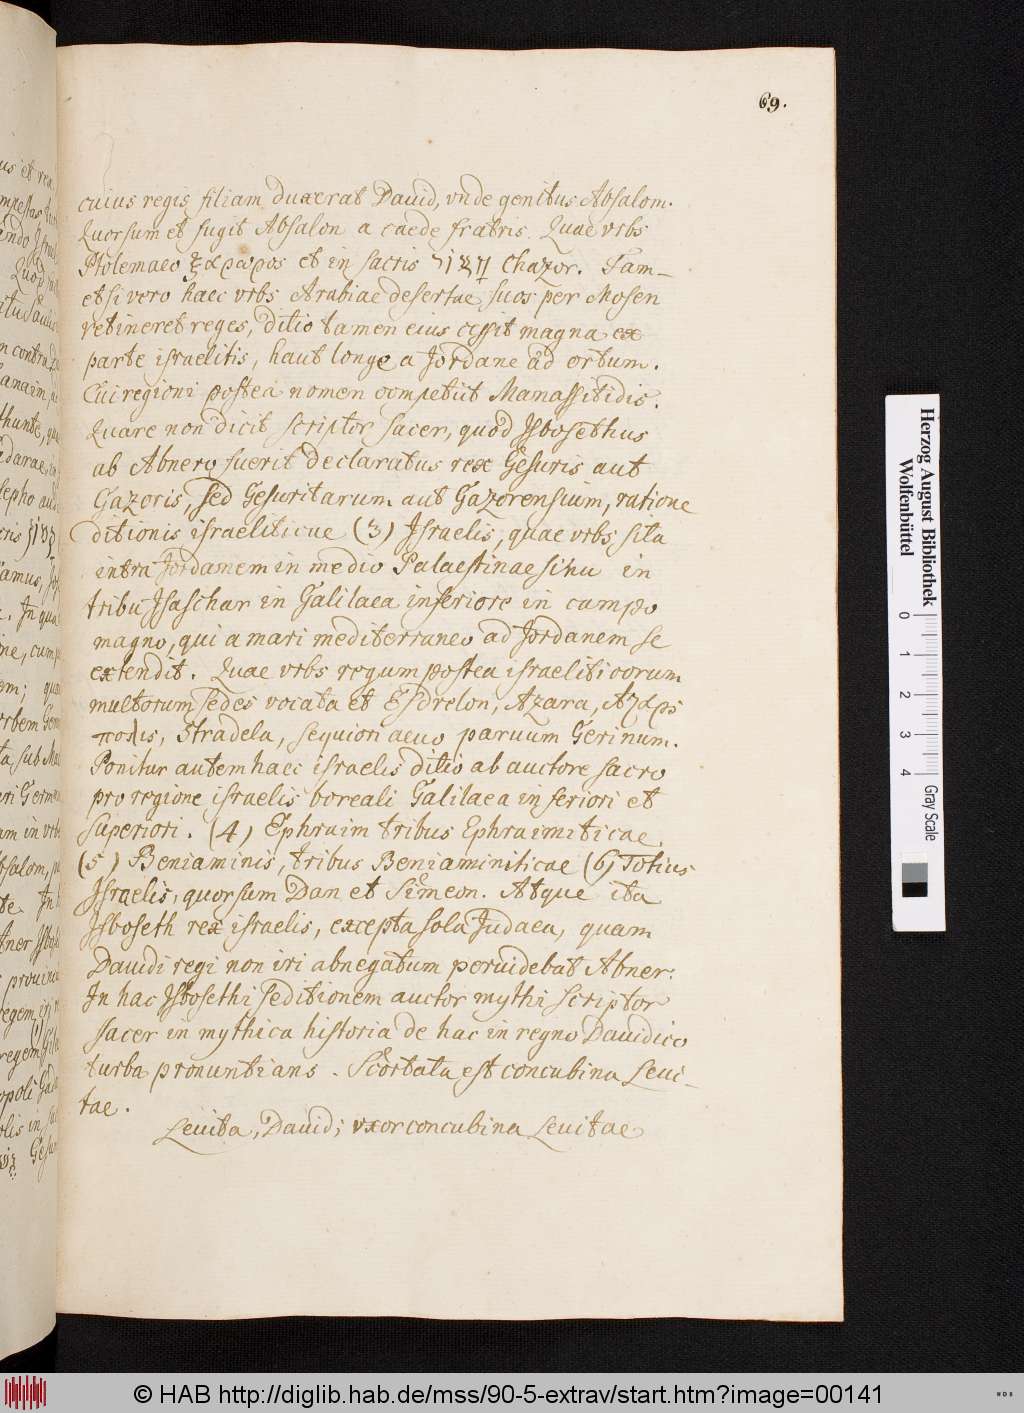 69.
cuius regis filiam duxerat Dauid, vnde genitus Absalom.
Quorsum et fugit Absalon a caede fratris. Quae vrbs
Ptolemaeo et in sacris חצור Chazor. Tam-
etsi vero haec vrbs Arabiae desertae suos per Mosen
retineret reges, ditio tamen eius cessit magna ex
parte israelitis, haut longe a Jordane ad ortum.
Cui regioni postea nomen competiit Manassitidis.
Quare non dicit scriptor sacer, quod Jsbosethus
ab Abnero fuerit declaratus rex Gesuris aut
Gazoris, sed Gesuritarum aut Gazorensium, ratione
ditionis israeliticae (3) Jsraelis, quae vrbs sita
intra Jordanem in medio Palaestinae sinu in
tribu Jsaschar in Galilaea inferiore in campo
magno, qui a mari mediterraneo ad Jordanem se
extendit. Quae vrbs regum postea israeliticorum
multorum sedes vocata et Esdrelon, Azara,
πολις, Stradela, sequiori aeuo paruum Gerinum.
Ponitur autem haec israelis ditio ab auctore sacro
pro regione israelis boreali Galilaea inferiori et
superiori. (4) Ephraim tribus Ephraimiticae
(5) Beniaminis, tribus Beniaminiticae (6) Totius
Jsraelis, quorsum Dan et Simeon. Atque ita
Jsboseth rex israelis, excepta sola Judaea, quam
Dauidi regi non iri abnegatum peruidebat Abner.
In hac Jsbosethi seditionem auctor mythi scriptor
sacer in mythica historia de hac in regno Dauidico
turba pronuntians. Scortata est concubina Leui-
tae.
Leuita, Dauid; vxor concubina Leuitae
Herzog August Bibliothek
Wolfenbüttel
0 1 2 3 4
Gray Scale
© HAB http://diglib.hab.de/mss/90-5-extrav/start.htm?image=00141